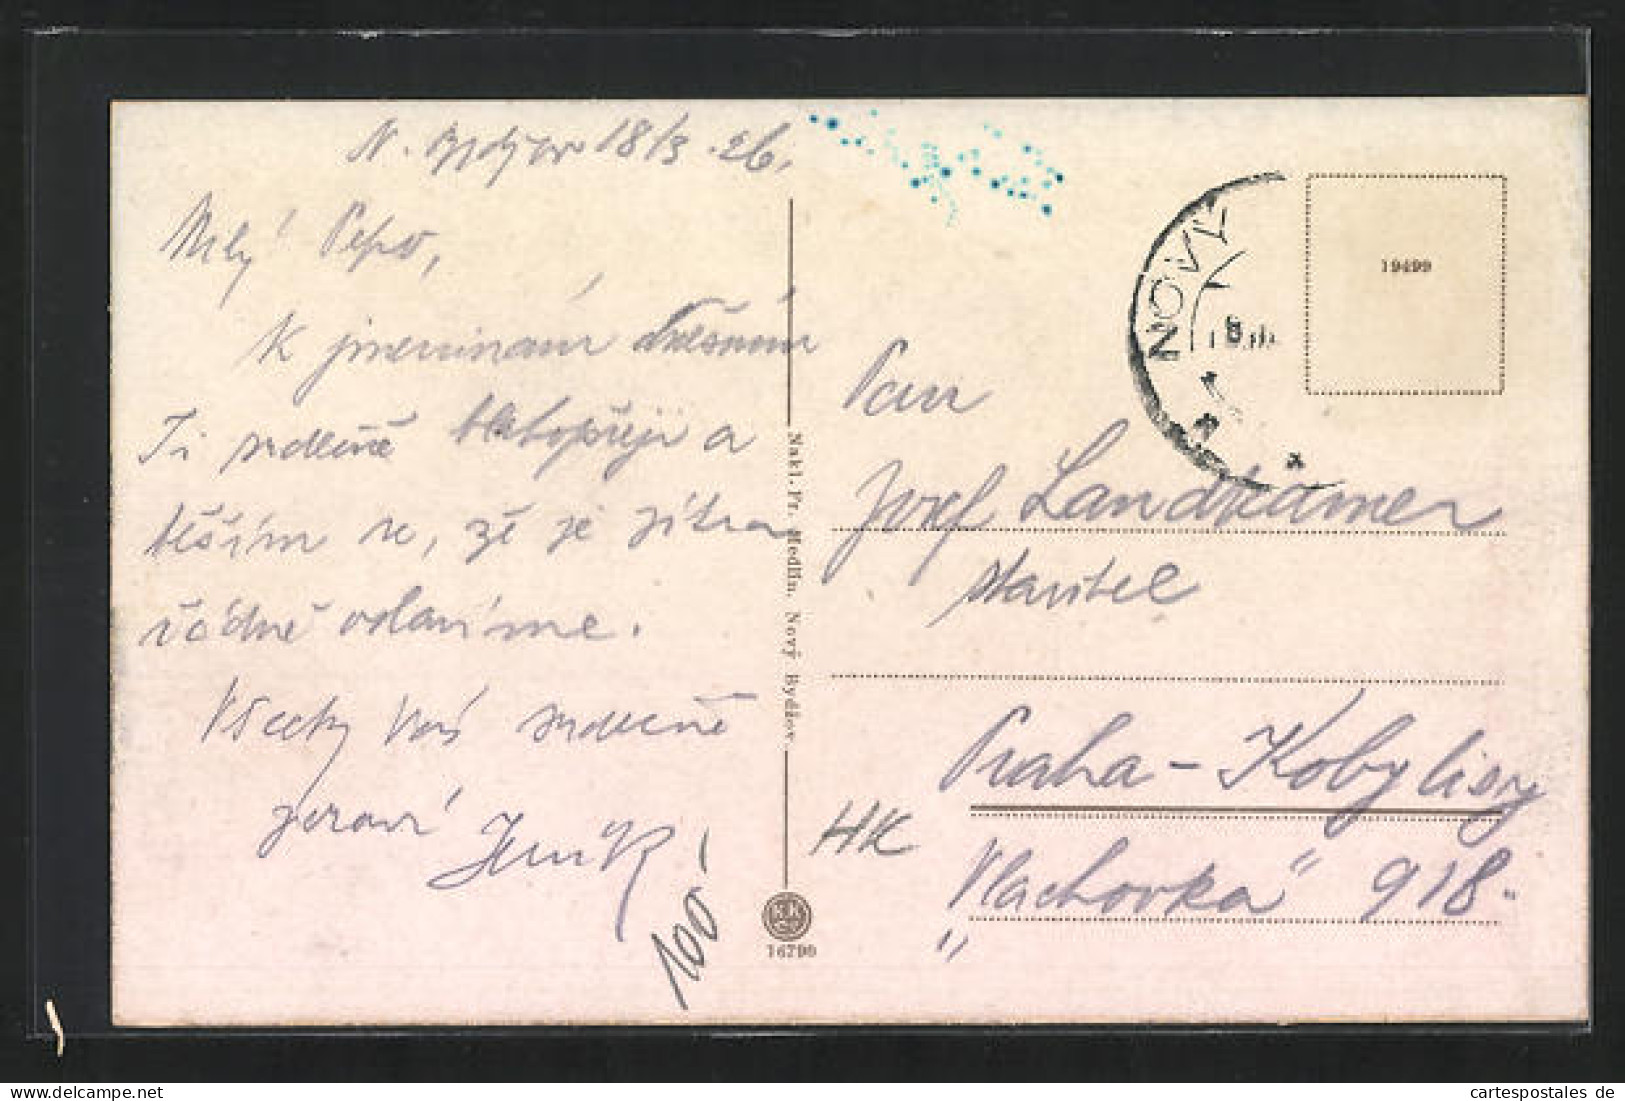 N. Bydžov 18/3.26.
Milý Pepo,
K jmeninám dnešním
Ti srdečně blahopřeji a
těším se, že je zítra
řádně oslavíme.
Všecky Vás srdečně
zdraví Jeník
100
Nakl. Fr. Hedlín, Nový Bydžov.
16790
NOVÝ
19499
Pan
Josef Landkamer
stavitel
Praha - Kobylisy
„Vlachovka" 918.
HK
cartespostales de